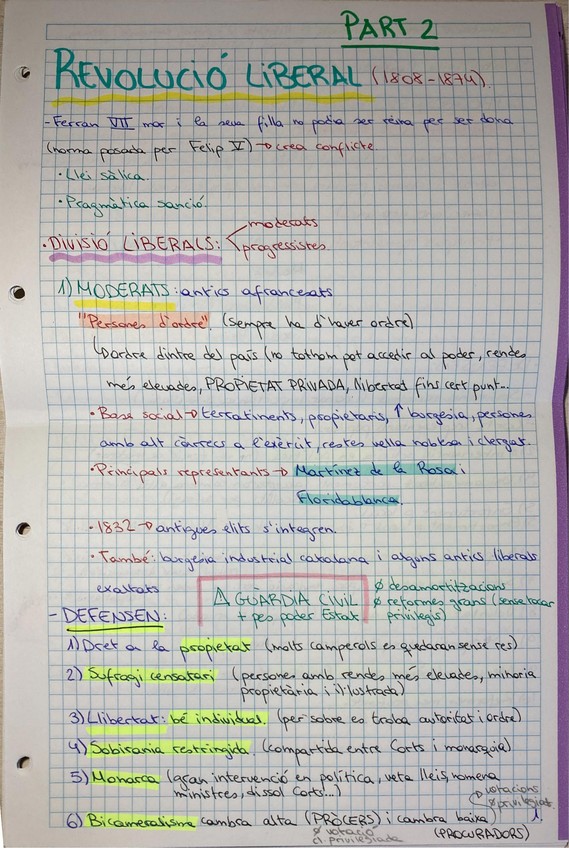 PART 2
REVOLUCIÓ LIBERAL (1808-1874).
-Ferran VII mor i la seva filla no podia ser reina per ser dona
(norma posada per Felip V) → crea conflicte.
· Llei sàlica.
· Pragmàtica sanció.
moderats
· DIVISIÓ LIBERALS:
progressistes.
1) MODERATS: antics afrancesats
"Persones d'ordre". (Sempre ha d'haver ordre)
↳ ordre dintre del país (no tothom pot accedir al poder, rendes
més elevades, PROPIETAT PRIVADA, llibertad fins cert punt...
· Base social → terratinents, propietaris, ↑ burgesia, persones
amb alt càrrecs a l'exèrcit, restes vella noblesa i clergat.
· Principals representants → Martínez de la Rosa i
Floridablanca.
· 1832 → antigues elits s'integren.
· També: burgesia industrial catalana i alguns antics liberals
exaltats
Δ GUÀRDIA CIVIL
+ pes poder Estat
Ø desamortitzacions
Ø reformes grans (sense tocar
privilegis)
- DEFENSEN:
1) Dret a la propietat (molts camperols es quedaran sense res)
2) Sufragi censatari (persones amb rendes més elevades, minoria
propietària i il·lustrada)
3) Llibertat: bé individual. (per sobre es troba autoritat i ordre)
4) Sobirania restringida. (compartida entre Corts i monarquia)
5) Monarca (gran intervenció en política, veta lleis, nomena
ministres, dissol Corts...)
votacions
Ø privilegiat.
6) Bicameralisme cambra alta (PRÒCERS) i cambra baixa
Ø votació
cl. privilegiada
(PROCURADORS)
1.